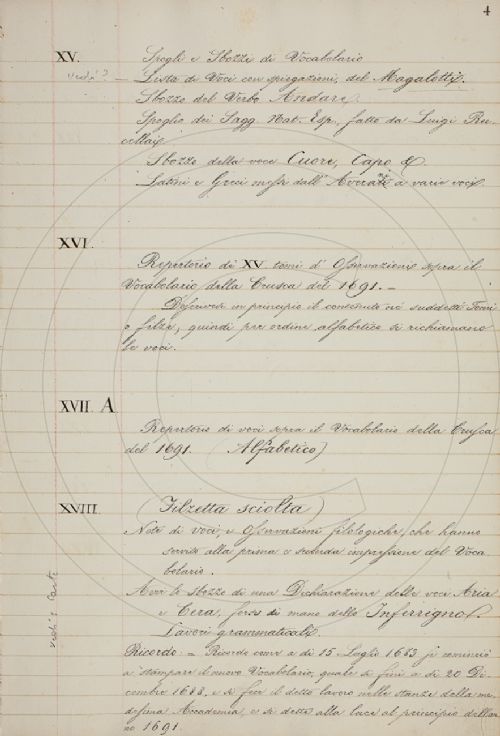 4
XV. Spogli e Sbozzi di Vocabolario
Vedi? — Lista di Voci con spiegazioni, del Magalotti.
Sbozzo del Verbo Andare.
Spoglio dei Sagg. Nat. Esp. fatto da Luigi Ru-
cellai
Sbozzo della voce Cuore, Capo &
Latini e Greci messi dall' Averani a varie voci
XVI.
Repertorio dei XV tomi d' Osservazioni sopra il
Vocabolario della Crusca del 1691. —
Descrivesi in principio il contenuto dei suddetti Tomi
o filze, quindi per ordine alfabetico si richiamano
le voci.
XVII. A
Repertorio di voci sopra il Vocabolario della Crusca
del 1691. (Alfabetico)
XVIII. (Filzetta sciolta)
Note di voci, e Osservazioni filologiche, che hanno
servito alla prima e seconda impressione del Voca
bolario.
Avvi lo sbozzo di una Dichiarazione delle voci Aria
e Cera, forse di mano dello Inferrigno.
Lavori grammaticali.
Ricordo. — Ricordo come a dì 15 Luglio 1683 si cominciò
a stampare il nuovo Vocabolario, quale si finì a dì 20 Di-
cembre 1688, e si fece il detto lavoro nelle stanze della me-
desima Accademia, e si dette alla luce al principio dell'an
no 1691.